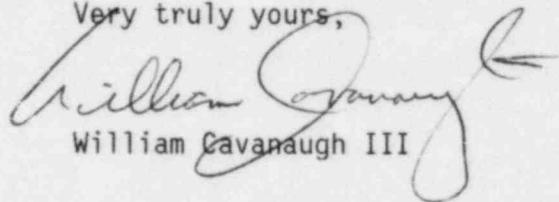 Very truly yours,
William Cavanaugh
William Cavanaugh III